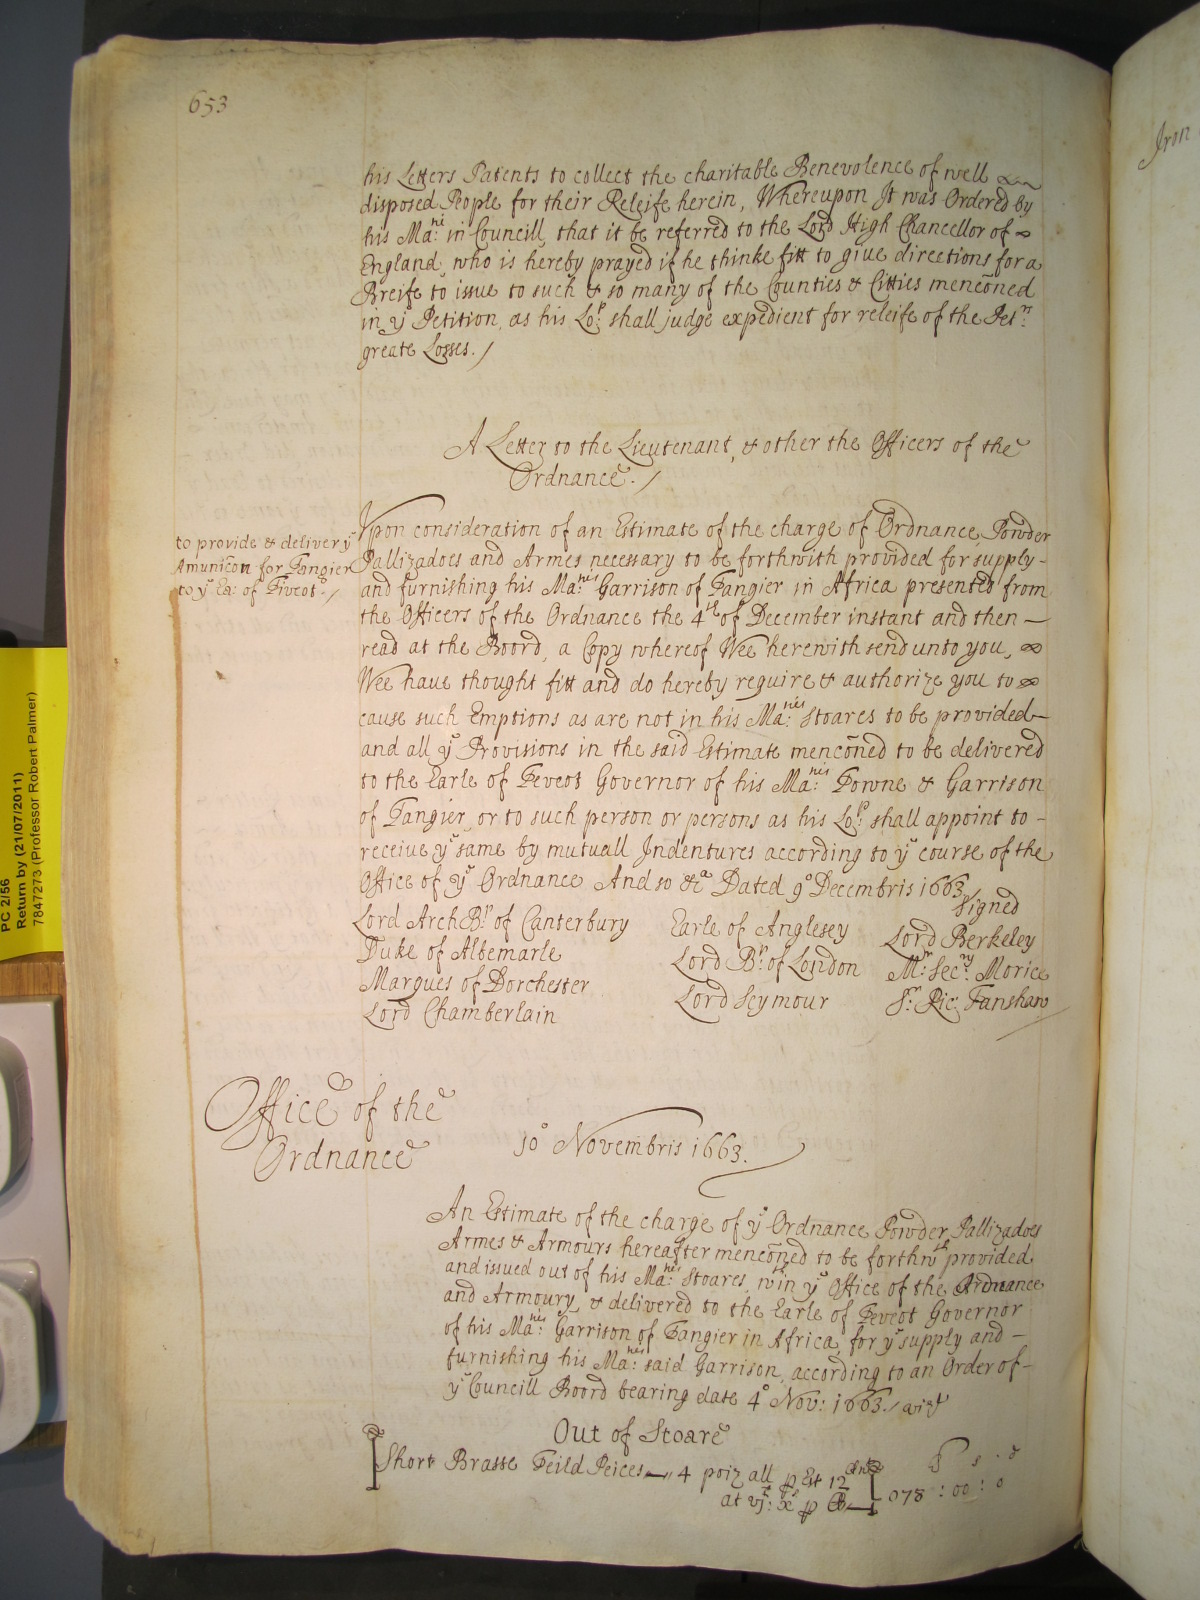 653
his Letters Patents to collect the charitable Benevolence of well
disposed People for their Releife herein, Whereupon It was Ordered by
his Ma:tie in Councill, that it be referred to the Lord High Chancellor of
England, who is hereby prayed if he thinke fitt to give directions for a
Breife to issue to such & so many of the Counties & Citties menc̄oned
in yͤ Petition, as his Lo:ᵖ shall judge expedient for releife of the Pet:ʳˢ
greate Losses./
A Letter to the Lieutenant, & other the Officers of the
Ordnance./
to provide & deliver yͤ
Amunic̄on for Tangier
to yͤ Ea: of Tiveot./
Vpon consideration of an Estimate of the charge of Ordnance, Powder
Pallizadoes and Armes necessary to be forthwith provided for supply-
and furnishing his Ma:ᵗⁱᵉˢ Garrison of Tangier in Africa presented from
the Officers of the Ordnance the 4ᵗʰ of December instant and then —
read at the Boord, a Copy whereof Wee herewith send unto you,
Wee haue thought fitt and do hereby require & authorize you to
cause such Emptions as are not in his Ma:ᵗⁱᵉˢ Stoares to be provided—
and all yͤ Provisions in the said Estimate menc̄oned to be delivered
to the Earle of Teveot Governor of his Ma:ᵗⁱᵉˢ Towne & Garrison
of Tangier, or to such person or persons as his Lo:ᵖ shall appoint to -
receive yͤ same by mutuall Indentures according to yͤ course of the
Office of yͤ Ordnance And so &cᵃ Dated 9º Decembris 1663
Signed
Lord ArchBᵖ of Canterbury Earle of Anglesey Lord Berkeley
Duke of Albemarle Lord Bᵖ: of London Mʳ: Secʳʸ: Morice
Marques of Dorchester Lord Seymour Sʳ: Ric: Fanshaw
Lord Chamberlain
Office of the
Ordnance
10º Novembris 1663.
An Estimate of the charge of yͤ Ordnance Powder, Pallizadoes
Armes & Armours hereafter menc̄oned to be forthwᵗʰ provided
and issued out of his Ma:ᵗⁱᵉˢ Stoares, wᵗʰin yͤ Office of the Ordnance
and Armoury, & delivered to the Earle of Teveot Governor
of his Ma:ᵗⁱᵉˢ Garrison of Tangier in Africa, for yͤ supply and —
furnishing his Ma:ᵗⁱᵉˢ said Garrison, according to an Order of-
yͤ Councill Boord bearing date 4º Nov: 1663./ vizᵗ
Out of Stoare
Short Brasse Feild Peices — 4 poiz all
078 : 00 : 0
Iron
PC 2/56
Return by (21/07/2011)
7847273 (Professor Robert Palmer)